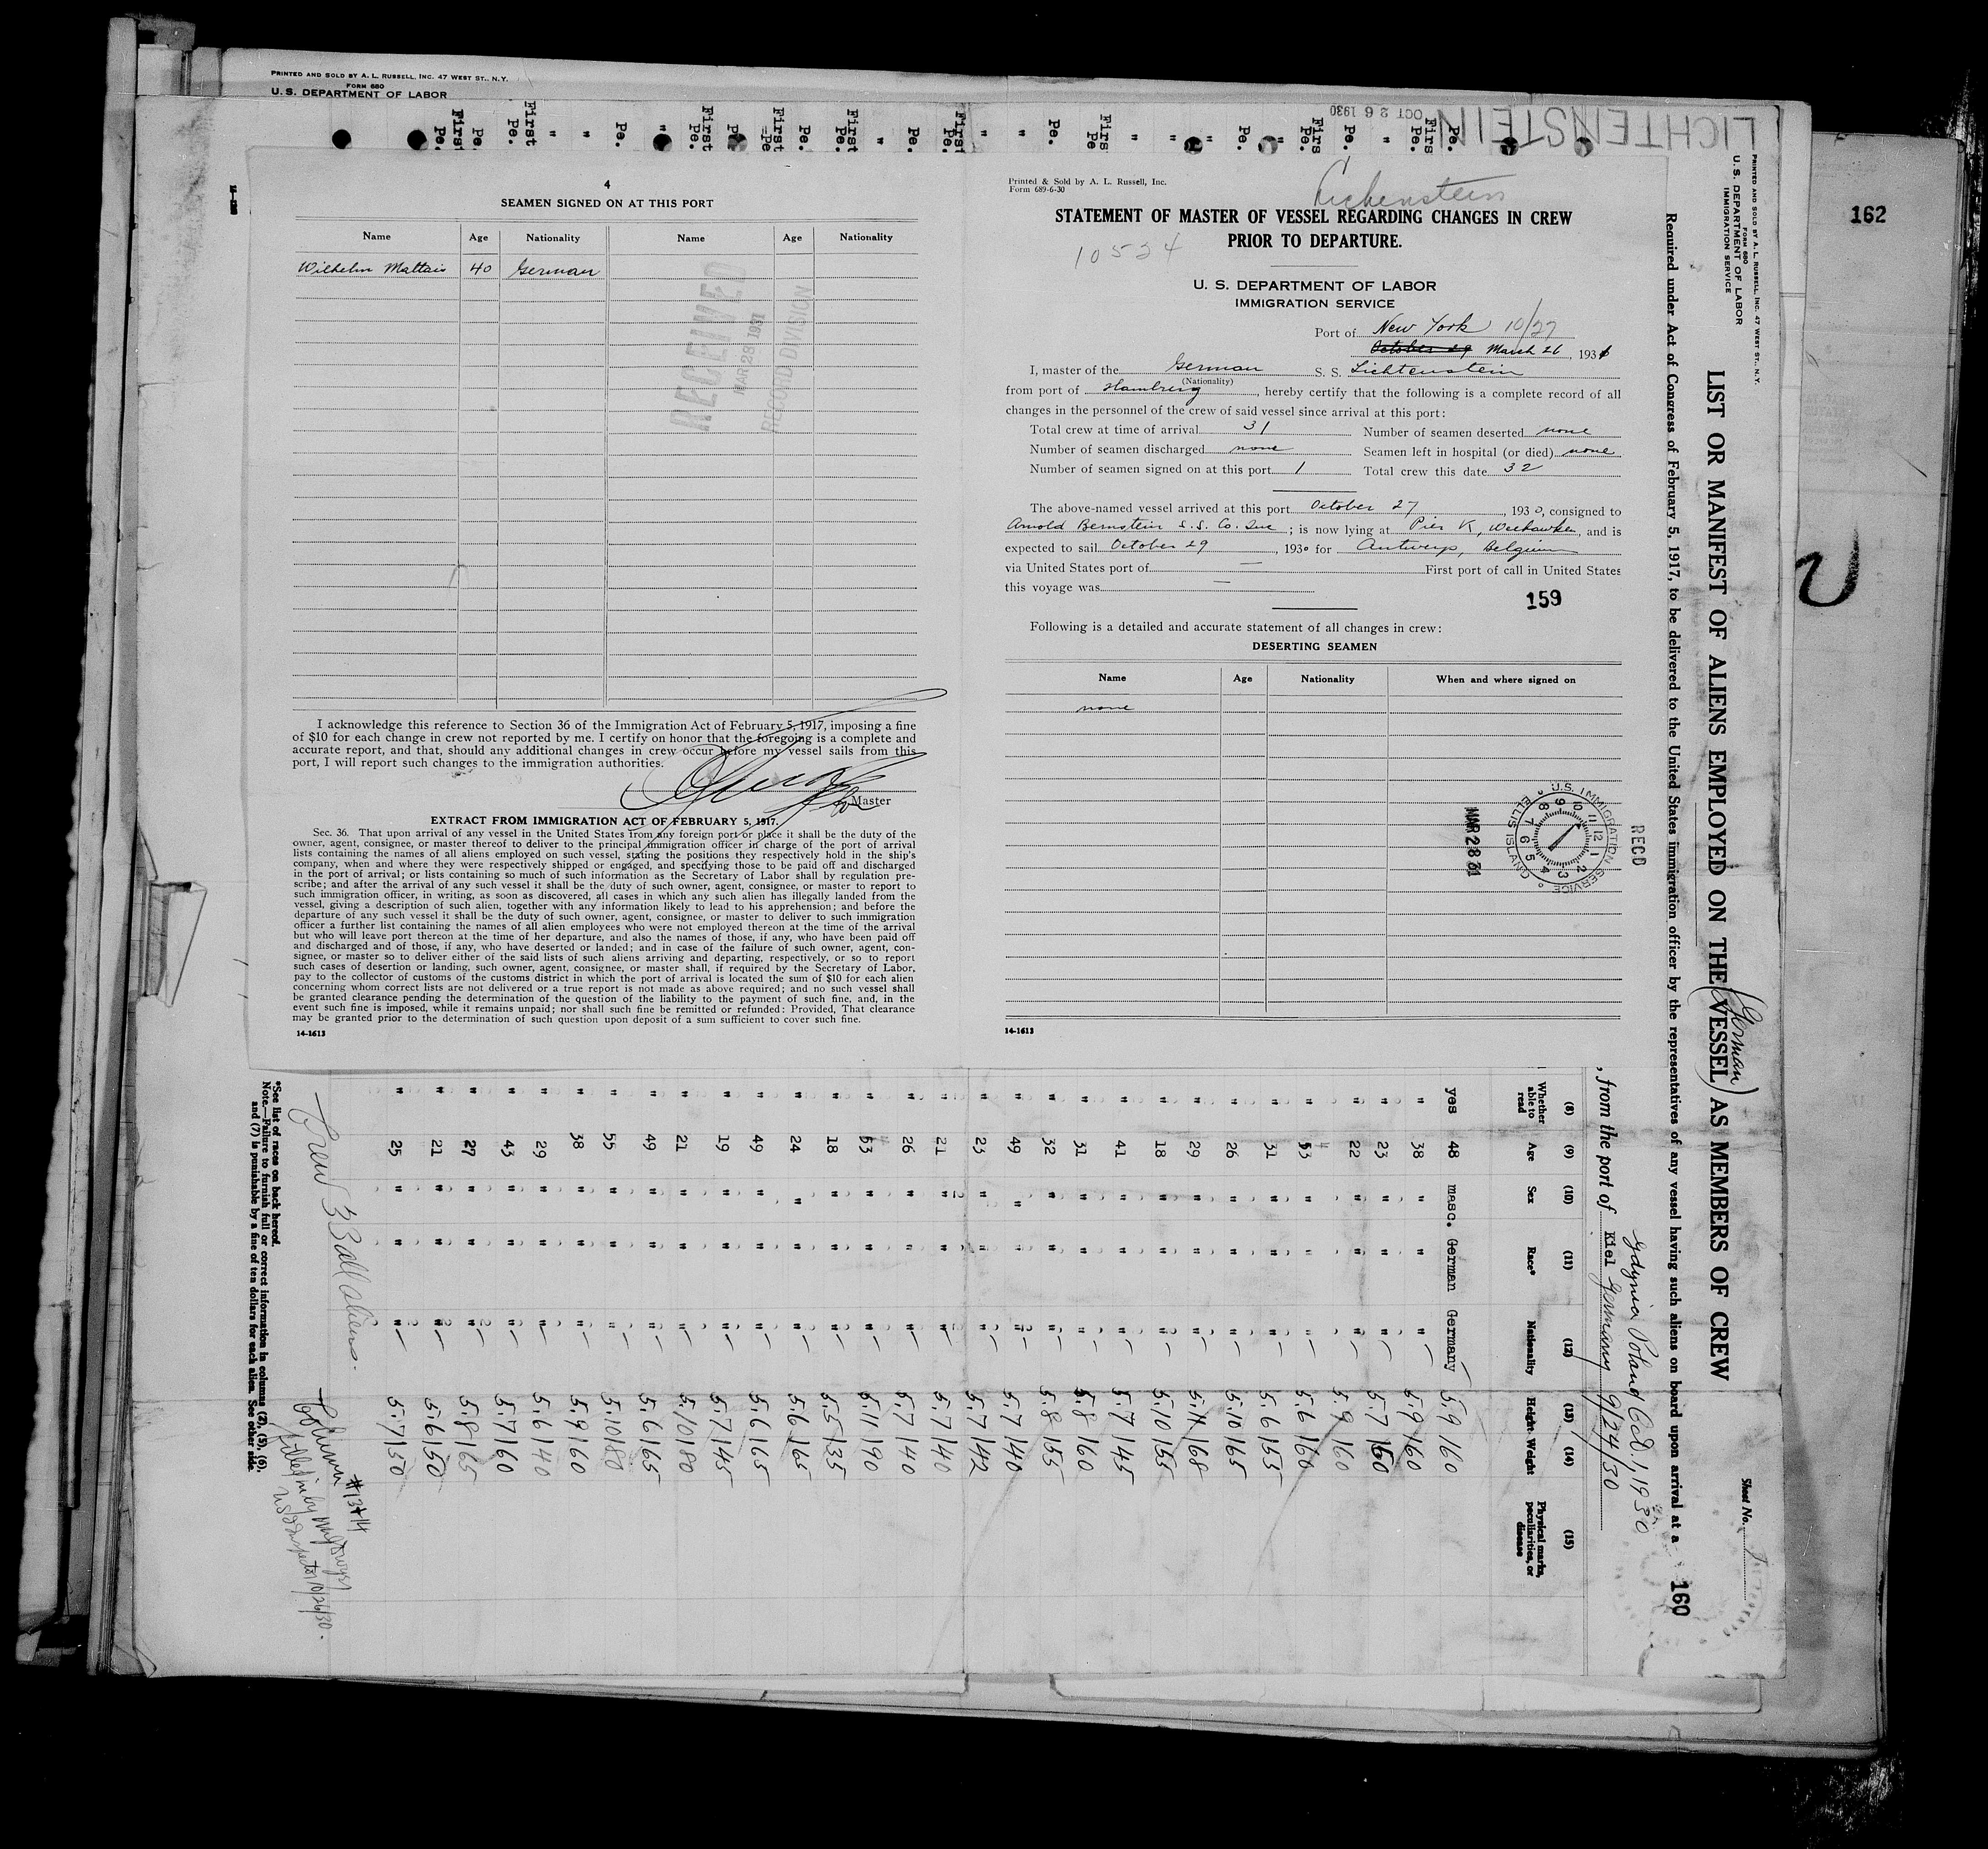 PRINTED AND SOLD BY A. L. RUSSELL, INC. 47 WEST ST., N.Y.
FORM 680
U. S. DEPARTMENT OF LABOR
LICHTENSTEIN
OCT 26 1930
162
4
SEAMEN SIGNED ON AT THIS PORT
Name Age Nationality Name Age Nationality
Wilhelm Mattais 40 German
RECEIVED
MAR 28 1931
RECORD DIVISION
I acknowledge this reference to Section 36 of the Immigration Act of February 5, 1917, imposing a fine
of $10 for each change in crew not reported by me. I certify on honor that the foregoing is a complete and
accurate report, and that, should any additional changes in crew occur before my vessel sails from this
port, I will report such changes to the immigration authorities.
Master
EXTRACT FROM IMMIGRATION ACT OF FEBRUARY 5, 1917.
Sec. 36. That upon arrival of any vessel in the United States from any foreign port or place it shall be the duty of the
owner, agent, consignee, or master thereof to deliver to the principal immigration officer in charge of the port of arrival
lists containing the names of all aliens employed on such vessel, stating the positions they respectively hold in the ship's
company, when and where they were respectively shipped or engaged, and specifying those to be paid off and discharged
in the port of arrival; or lists containing so much of such information as the Secretary of Labor shall by regulation pre-
scribe; and after the arrival of any such vessel it shall be the duty of such owner, agent, consignee, or master to report to
such immigration officer, in writing, as soon as discovered, all cases in which any such alien has illegally landed from the
vessel, giving a description of such alien, together with any information likely to lead to his apprehension; and before the
departure of any such vessel it shall be the duty of such owner, agent, consignee, or master to deliver to such immigration
officer a further list containing the names of all alien employees who were not employed thereon at the time of the arrival
but who will leave port thereon at the time of her departure, and also the names of those, if any, who have been paid off
and discharged and of those, if any, who have deserted or landed; and in case of the failure of such owner, agent, con-
signee, or master so to deliver either of the said lists of such aliens arriving and departing, respectively, or so to report
such cases of desertion or landing, such owner, agent, consignee, or master shall, if required by the Secretary of Labor,
pay to the collector of customs of the customs district in which the port of arrival is located the sum of $10 for each alien
concerning whom correct lists are not delivered or a true report is not made as above required; and no such vessel shall
be granted clearance pending the determination of the question of the liability to the payment of such fine, and, in the
event such fine is imposed, while it remains unpaid; nor shall such fine be remitted or refunded: Provided, That clearance
may be granted prior to the determination of such question upon deposit of a sum sufficient to cover such fine.
14-1613
Printed & Sold by A. L. Russell, Inc.
Form 689-6-30
Lichenstein
STATEMENT OF MASTER OF VESSEL REGARDING CHANGES IN CREW
PRIOR TO DEPARTURE.
10524
U. S. DEPARTMENT OF LABOR
IMMIGRATION SERVICE
Port of New York 10/27
October 29 March 26, 1931
I, master of the German S. S. Lichtenstein
(Nationality)
from port of Hamburg, hereby certify that the following is a complete record of all
changes in the personnel of the crew of said vessel since arrival at this port:
Total crew at time of arrival 31 Number of seamen deserted none
Number of seamen discharged none Seamen left in hospital (or died) none
Number of seamen signed on at this port 1 Total crew this date 32
The above-named vessel arrived at this port October 27, 1930, consigned to
Arnold Bernstein S.S. Co. Inc; is now lying at Pier K, Weehawken, and is
expected to sail October 29, 1930 for Antwerp, Belgium
via United States port of — First port of call in United States
this voyage was —
159
Following is a detailed and accurate statement of all changes in crew:
DESERTING SEAMEN
Name Age Nationality When and where signed on
none
MAR 28 31
U.S. IMMIGRATION SERVICE ELLIS ISLAND
REC'D
14-1613
PRINTED AND SOLD BY A. L. RUSSELL, INC. 47 WEST ST., N.Y.
FORM 680
U. S. DEPARTMENT OF LABOR
IMMIGRATION SERVICE
Sheet No. 1
LIST OR MANIFEST OF ALIENS EMPLOYED ON THE (German) VESSEL AS MEMBERS OF CREW
Required under Act of Congress of February 5, 1917, to be delivered to the United States immigration officer by the representatives of any vessel having such aliens on board upon arrival at a
160
Gdynia Poland Oct. 1, 1930
, from the port of Kiel Germany 9/24/30
(8) (9) (10) (11) (12) (13) (14) (15)
Whether able to read Age Sex Race* Nationality Height Weight Physical marks, peculiarities, or disease
yes 48 masc. German Germany 5.9 160
" 38 " " " 5.9 160
" 23 " " " 5.7 160
" 22 " " " 5.9 160
" 53 " " " 5.6 160
" 31 " " " 5.6 155
" 26 " " " 5.10 165
" 29 " " " 5.11 168
" 18 " " " 5.10 155
" 41 " " " 5.7 145
" 31 " " " 5.8 160
" 32 " " " 5.8 155
" 49 " " " 5.7 140
" 23 " " " 5.7 142
" 21 " " " 5.7 140
" 26 " " " 5.7 140
" 53 " " " 5.11 190
" 18 " " " 5.5 135
" 24 " " " 5.6 165
" 49 " " " 5.6 165
" 19 " " " 5.7 145
" 21 " " " 5.10 180
" 49 " " " 5.6 165
" 55 " " " 5.10 180
" 38 " " " 5.9 160
" 29 " " " 5.6 140
" 43 " " " 5.7 160
" 27 " " " 5.8 165
" 21 " " " 5.6 150
" 25 " " " 5.7 150
Crew 33 all aliens.
Column #13+14
filled in by
US Inspector 10/26/30.
*See list of races on back hereof.
Note.—Failure to furnish full or correct information in columns (2), (5), (6),
and (7) is punishable by a fine of ten dollars for each alien. See other side.